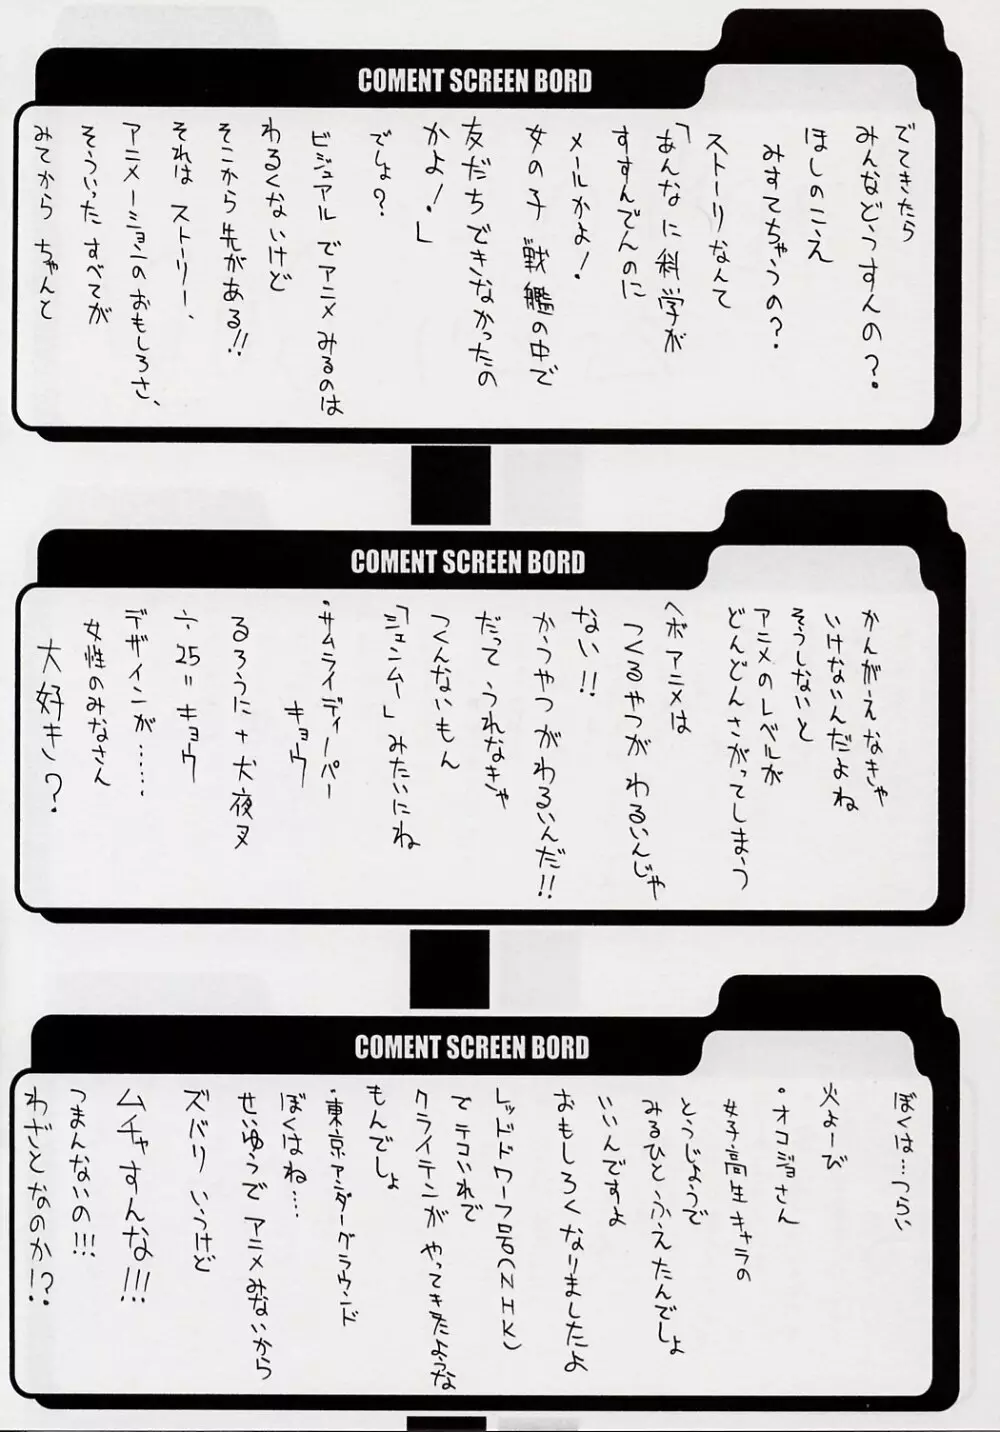 COMENT SCREEN BORD
でてきたら
みんなどうすんの?
ほしのこえ
みすてちゃうの?
ストーリなんて
「あんなに科学が
すすんでんのに
メールかよ!
女の子 戦艦の中で
友だちできなかったの
かよ!」
でしょ?
ビジュアルでアニメみるのは
わるくないけど
そこから先がある!!
それは ストーリー、
アニメーションのおもしろさ、
そういった すべてが
みてから ちゃんと
COMENT SCREEN BORD
かんがえなきゃ
いけないんだよね
そうしないと
アニメのレベルが
どんどんさがってしまう
ヘボアニメは
つくるやつが わるいんじゃ
ない!!
かうやつがわるいんだ!!
だって うれなきゃ
つくんないもん
「ジェンムー」みたいにね
・サムライディーパー
キョウ
るろうに+犬夜叉
÷25=キョウ
デザインが……
女性のみなさん
大好き?
COMENT SCREEN BORD
ぼくは…つらい
火よーび
・オコジョさん
女子高生キャラの
とうじょうで
みるひとふえたんでしょ
いいんですよ
おもしろくなりましたよ
レッドドワーフ号(NHK)
でテコいれで
クライテンが やってきたような
もんでしょ
・東京アンダーグラウンド
ぼくはね…
せいゆうで アニメみないから
ズバリ いうけど
ムチャすんな!!!
つまんないの!!!
わざとなのか!?